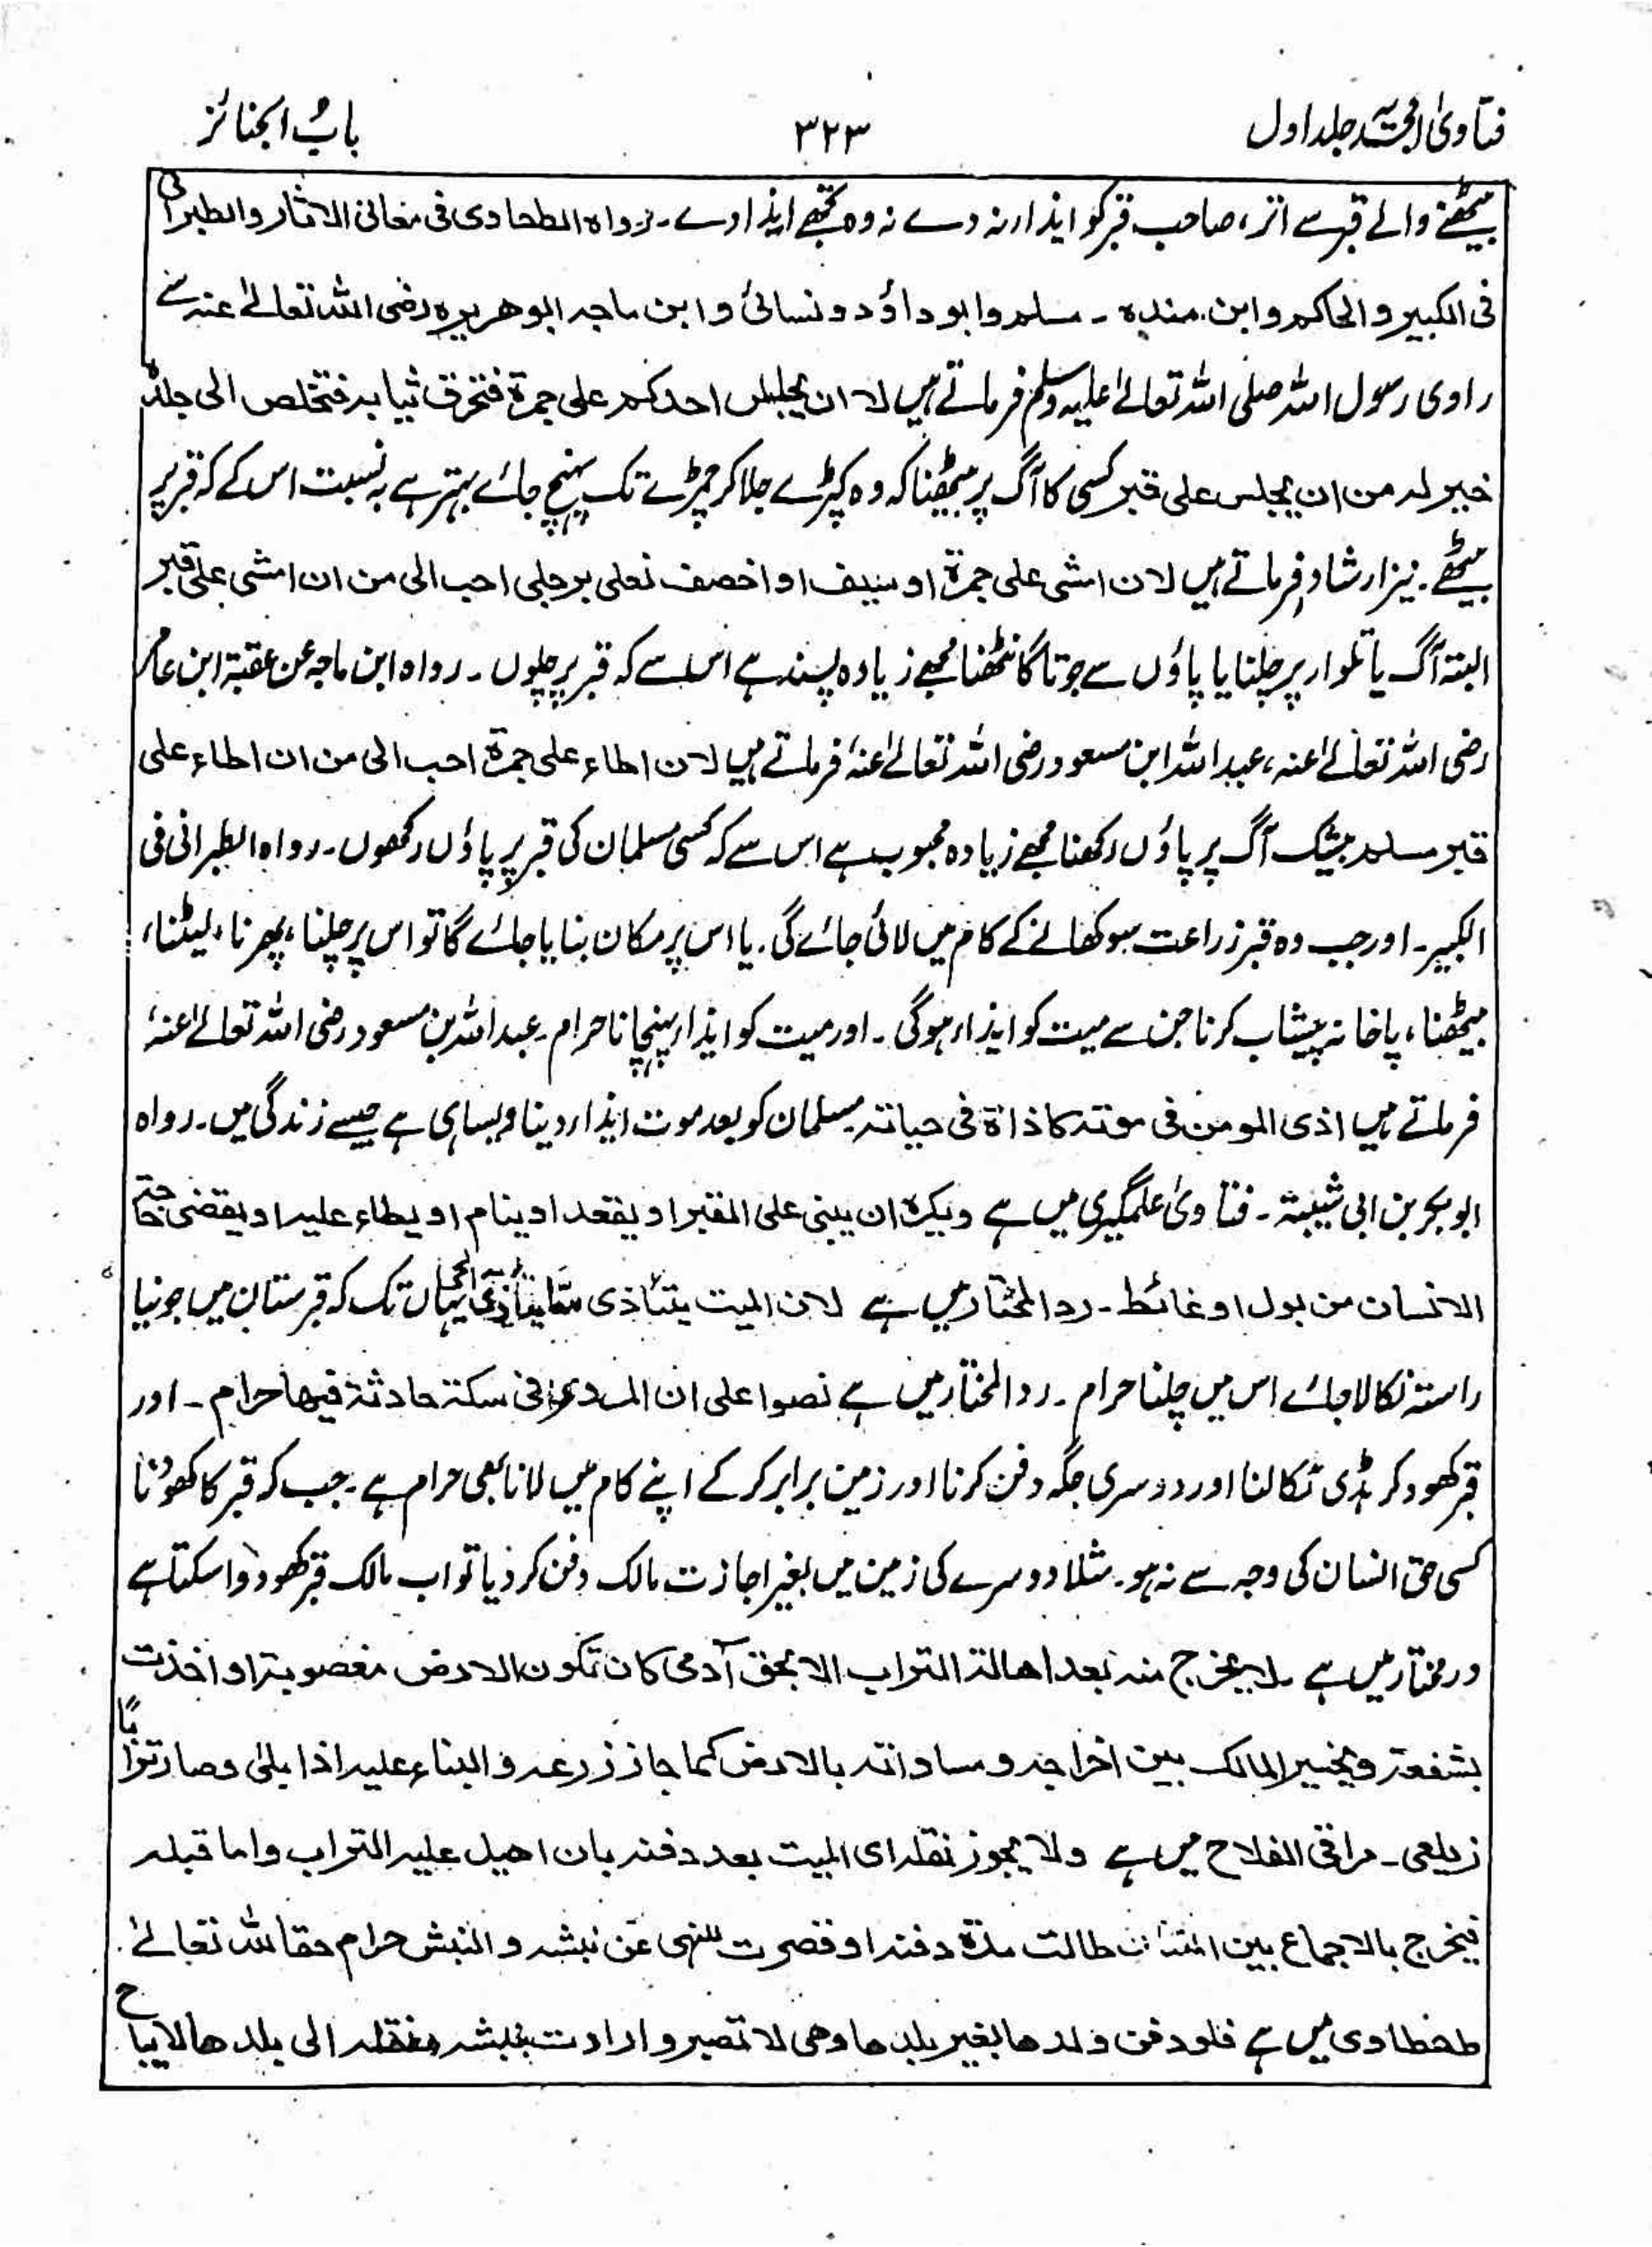 فتاویٰ امجدیہ جلد اول
۳۲۳
باب الجنائز
بیٹھنے والے قبر سے اتر، صاحب قبر کو ایذار نہ دے نہ وہ تجھے ایذار دے۔ رواہ الطحاوی فی معانی الاثار والطبرانی
فی الکبیر والحاکم وابن مندہ ۔ مسلم وابو داؤد و نسائی و ابن ماجہ ابو ھریرہ رضی اللہ تعالےٰ عنہ سے
راوی رسول اللہ صلی اللہ تعالےٰ علیہ وسلم فرماتے ہیں لا ان یجلس احدکم علی جمرۃ فتحرق ثیابہ فتخلص الی جلدہ
خیر لہ من ان یجلس علی قبر کسی کا آگ پر بیٹھنا کہ وہ کپڑے جلا کر چمڑے تک پہنچ جائے بہتر ہے بہ نسبت اس کے کہ قبر پر
بیٹھے۔ نیز ارشاد فرماتے ہیں لان امشی علی جمرۃ او سیف او اخصف نعلی برجلی احب الی من ان امشی علی قبر
البتہ آگ یا تلوار پر چلنا یا پاؤں سے جوتا گانٹھنا مجھے زیادہ پسند ہے اس سے کہ قبر پر چلوں ۔ رواہ ابن ماجہ عن عقبۃ ابن عامر
رضی اللہ تعالےٰ عنہ، عبد اللہ ابن مسعود رضی اللہ تعالےٰ عنہٗ فرماتے ہیں لان اطاء علی جمرۃ احب الی من ان اطاء علی
قبر مسلم بیشک آگ پر پاؤں رکھنا مجھے زیادہ محبوب ہے اس سے کہ کسی مسلمان کی قبر پر پاؤں رکھوں۔ رواہ الطبرانی فی
الکبیر۔ اور جب وہ قبر زراعت سوکھانے کے کام میں لائی جائے گی۔ یا اس پر مکان بنایا جائے گا تو اس پر چلنا، پھرنا، لیٹنا،
بیٹھنا، پاخانہ پیشاب کرنا جن سے میت کو ایذار ہوگی ۔ اور میت کو ایذار پہنچانا حرام۔ عبد اللہ بن مسعود رضی اللہ تعالےٰ عنہٗ
فرماتے ہیں اذی المومن فی موتہ کاذاۃ فی حیاتہ مسلمان کو بعد موت ایذار دینا ویسا ہی ہے جیسے زندگی میں۔ رواہ
ابو بکر بن ابی شیبۃ ۔ فتاویٰ علمگیری میں ہے ویکرہ ان یبنی علی القبر او یقعد او ینام او یطاء علیہ او یقضی حاجۃ
الانسان من بول او غائط ۔ رد المحتار میں ہے لان المیت یتأذی بما یتأذی بہ الحی یہاں تک کہ قبرستان میں جو نیا
راستہ نکالا جائے اس میں چلنا حرام ۔ رد المحتار میں ہے نصوا علی ان المرور فی سکۃ حادثۃ فیھا حرام ۔ اور
قبر کھود کر ہڈی نکالنا اور دوسری جگہ دفن کرنا اور زمین برابر کر کے اپنے کام میں لانا بھی حرام ہے۔ جب کہ قبر کا کھودنا
کسی حق انسان کی وجہ سے نہ ہو۔ مثلا دوسرے کی زمین میں بغیر اجازت مالک دفن کر دیا تو اب مالک قبر کھودوا سکتا ہے
در مختار میں ہے ۔ لا یخرج منہ بعد اھالۃ التراب الا بحق آدمی کان تکون الارض مغصوبۃ او اخذت
بشفعۃ ویخیر المالک بین اخراجہ و مساواتہ بالارض کما جاز زرعہ والبناء علیہ اذا بلیٰ وصار ترابًا
زیلعی ۔ مراقی الفلاح میں ہے ولا یجوز نقلہ ای المیت بعد دفنہ بان اھیل علیہ التراب واما قبلہ
فیخرج بالاجماع بین طالت مدۃ دفنہ او قصرت للنھی عن نبشہ والنبش حرام حقا للہ تعالےٰ۔
طحطاوی میں ہے فلو دفن ولدھا بغیر بلدھا وھی لا تصبر و ارادت نبشہ ونقلہ الی بلدھا لا یباح